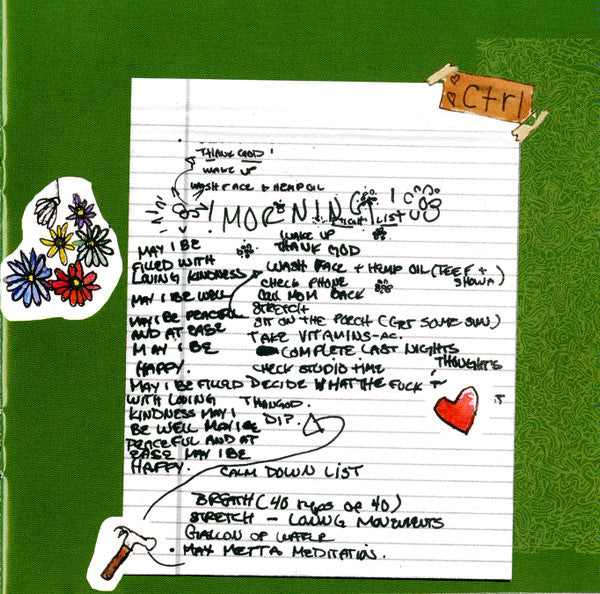 Ctrl
THANK GOD!
WAKE UP
WASH FACE + HEMP OIL
! MORNING !
LIST
WAKE UP
THANK GOD
WASH FACE + HEMP OIL (TEEF + SHOWA)
CHECK PHONE
CALL MOM BACK
STRETCH
SIT ON THE PORCH (GET SOME SUN)
TAKE VITAMINS-AC.
COMPLETE LAST NIGHTS THOUGHTS
CHECK STUDIO TIME
DECIDE WHAT THE FUCK
THANGOD.
DIP.
MAY I BE
FILLED WITH
LOVING KINDNESS
MAY I BE WELL
MAY I BE PEACEFUL
AND AT EASE
MAY I BE
HAPPY.
MAY I BE FILLED
WITH LOVING
KINDNESS MAY I
BE WELL MAY I BE
PEACEFUL AND AT
EASE MAY I BE
HAPPY.
CALM DOWN LIST
BREATH (40 reps of 40)
STRETCH - LOVING MOVEMENTS
GALLON OF WATER
MAX METTA MEDITATION.